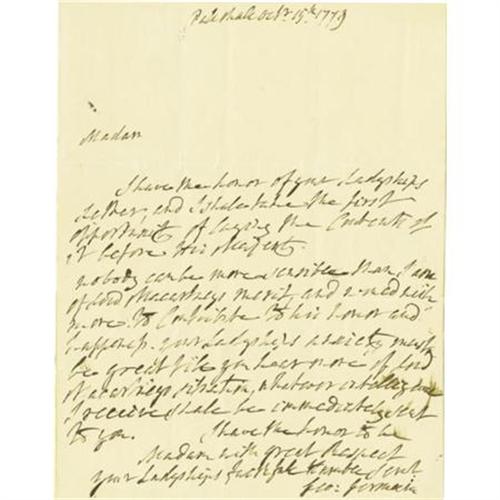 Pall Mall Octr. 15th. 1779
Madam
I have the honor of your Ladyships
letter, and I shall take the first
opportunity of laying the Contents of
it before His Majesty.
nobody can be more sensible than I am
of Lord Macartneys merit, and
more to Contribute to his honor and
happyness. your Ladyships anxiety must
be great till you hear more of Lord
Macartneys situation, whatever intelligence
I receive shall be immediately sent
to you. I have the honor to be
Madam with great Respect
your Ladyships faithful Humble Servt
Geo: Germain